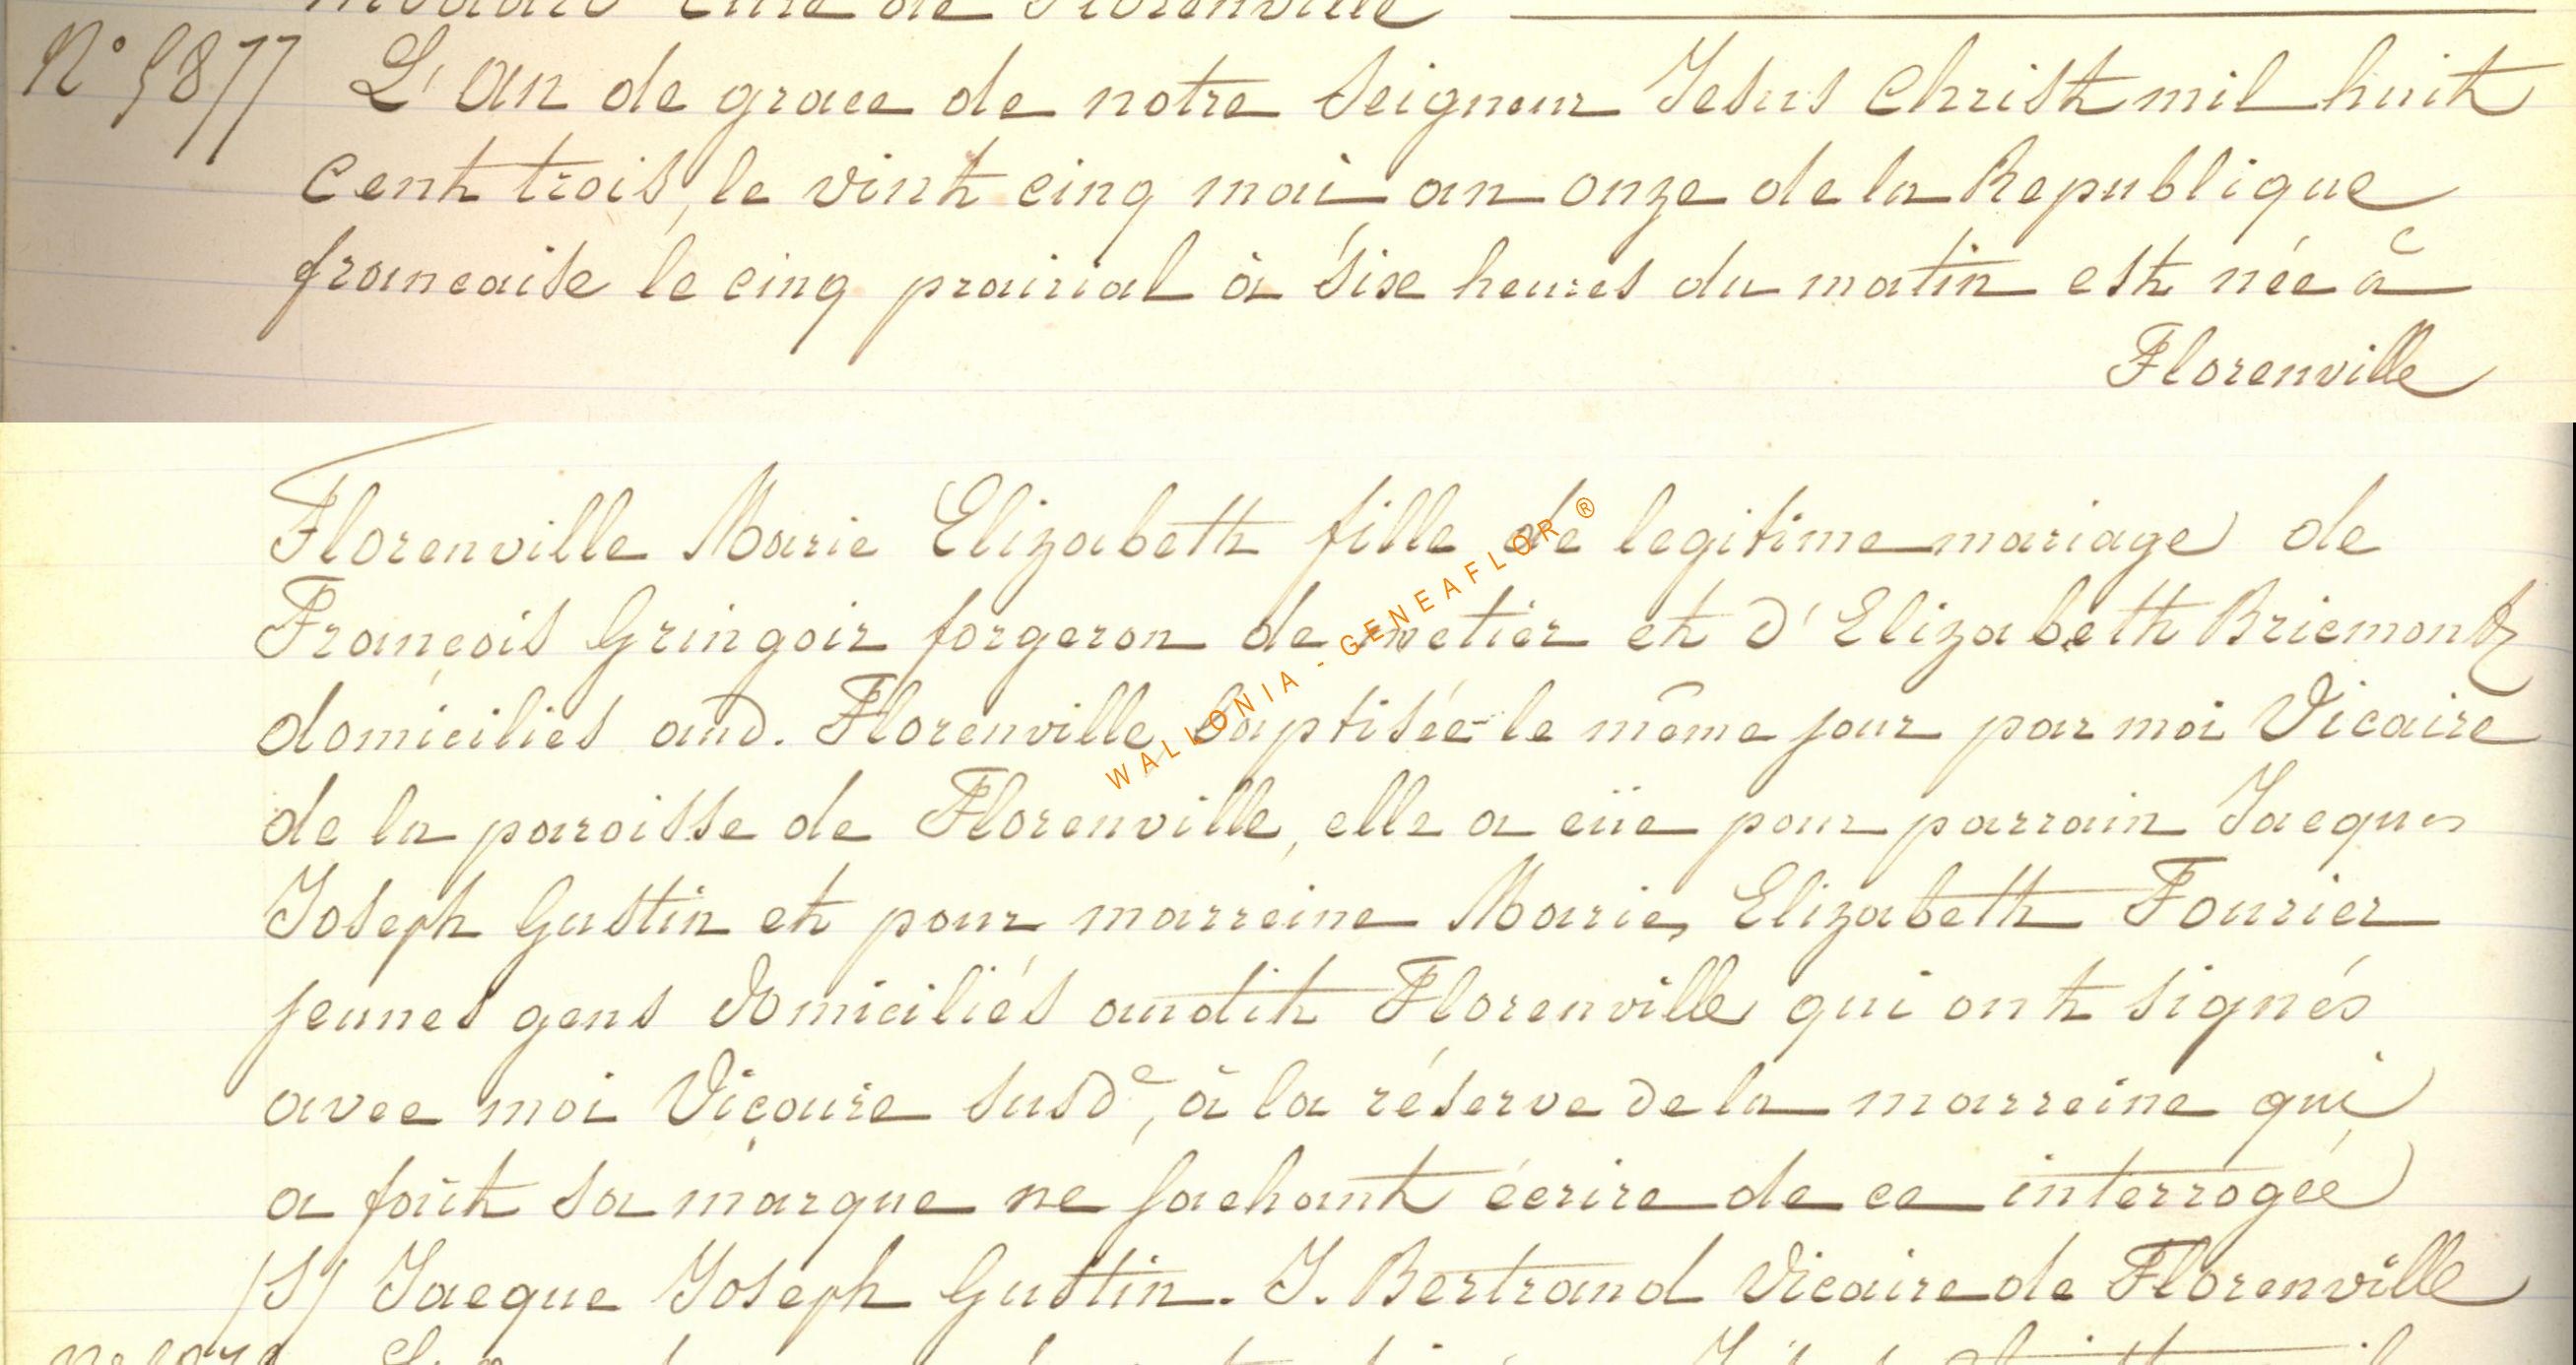 Curé de Florenville
N° 5877 L'An de grace de notre Seigneur Jesus Christ mil huit
cent trois, le vint cinq mai an onze de la Republique
francaise le cinq prairial à six heures du matin est née à
Florenville
Florenville Marie Elizabeth fille de legitime mariage de
François Gringoir forgeron de metier et d'Elizabeth Briemont
domiciliés aud. Florenville baptisée le même jour par moi Vicaire
de la paroisse de Florenville, elle a eüe pour parrain Jacques
Joseph Gustin et pour marreine Marie, Elizabeth Fourier
jeunes gens domiciliés audit Florenville qui ont signés
avec moi Vicaire susd^e, à la réserve de la marreine qui
a fait sa marque ne sachant écrire de ce interrogée
(S) Jacque Joseph Gustin. J. Bertrand Vicaire de Florenville
WALLONIA - GENEAFLOR ®